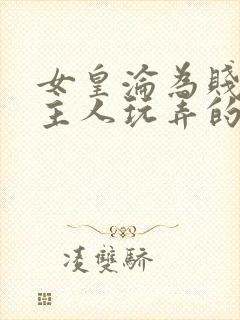 女皇淪為賤
主人玩弄的
凌雙驕